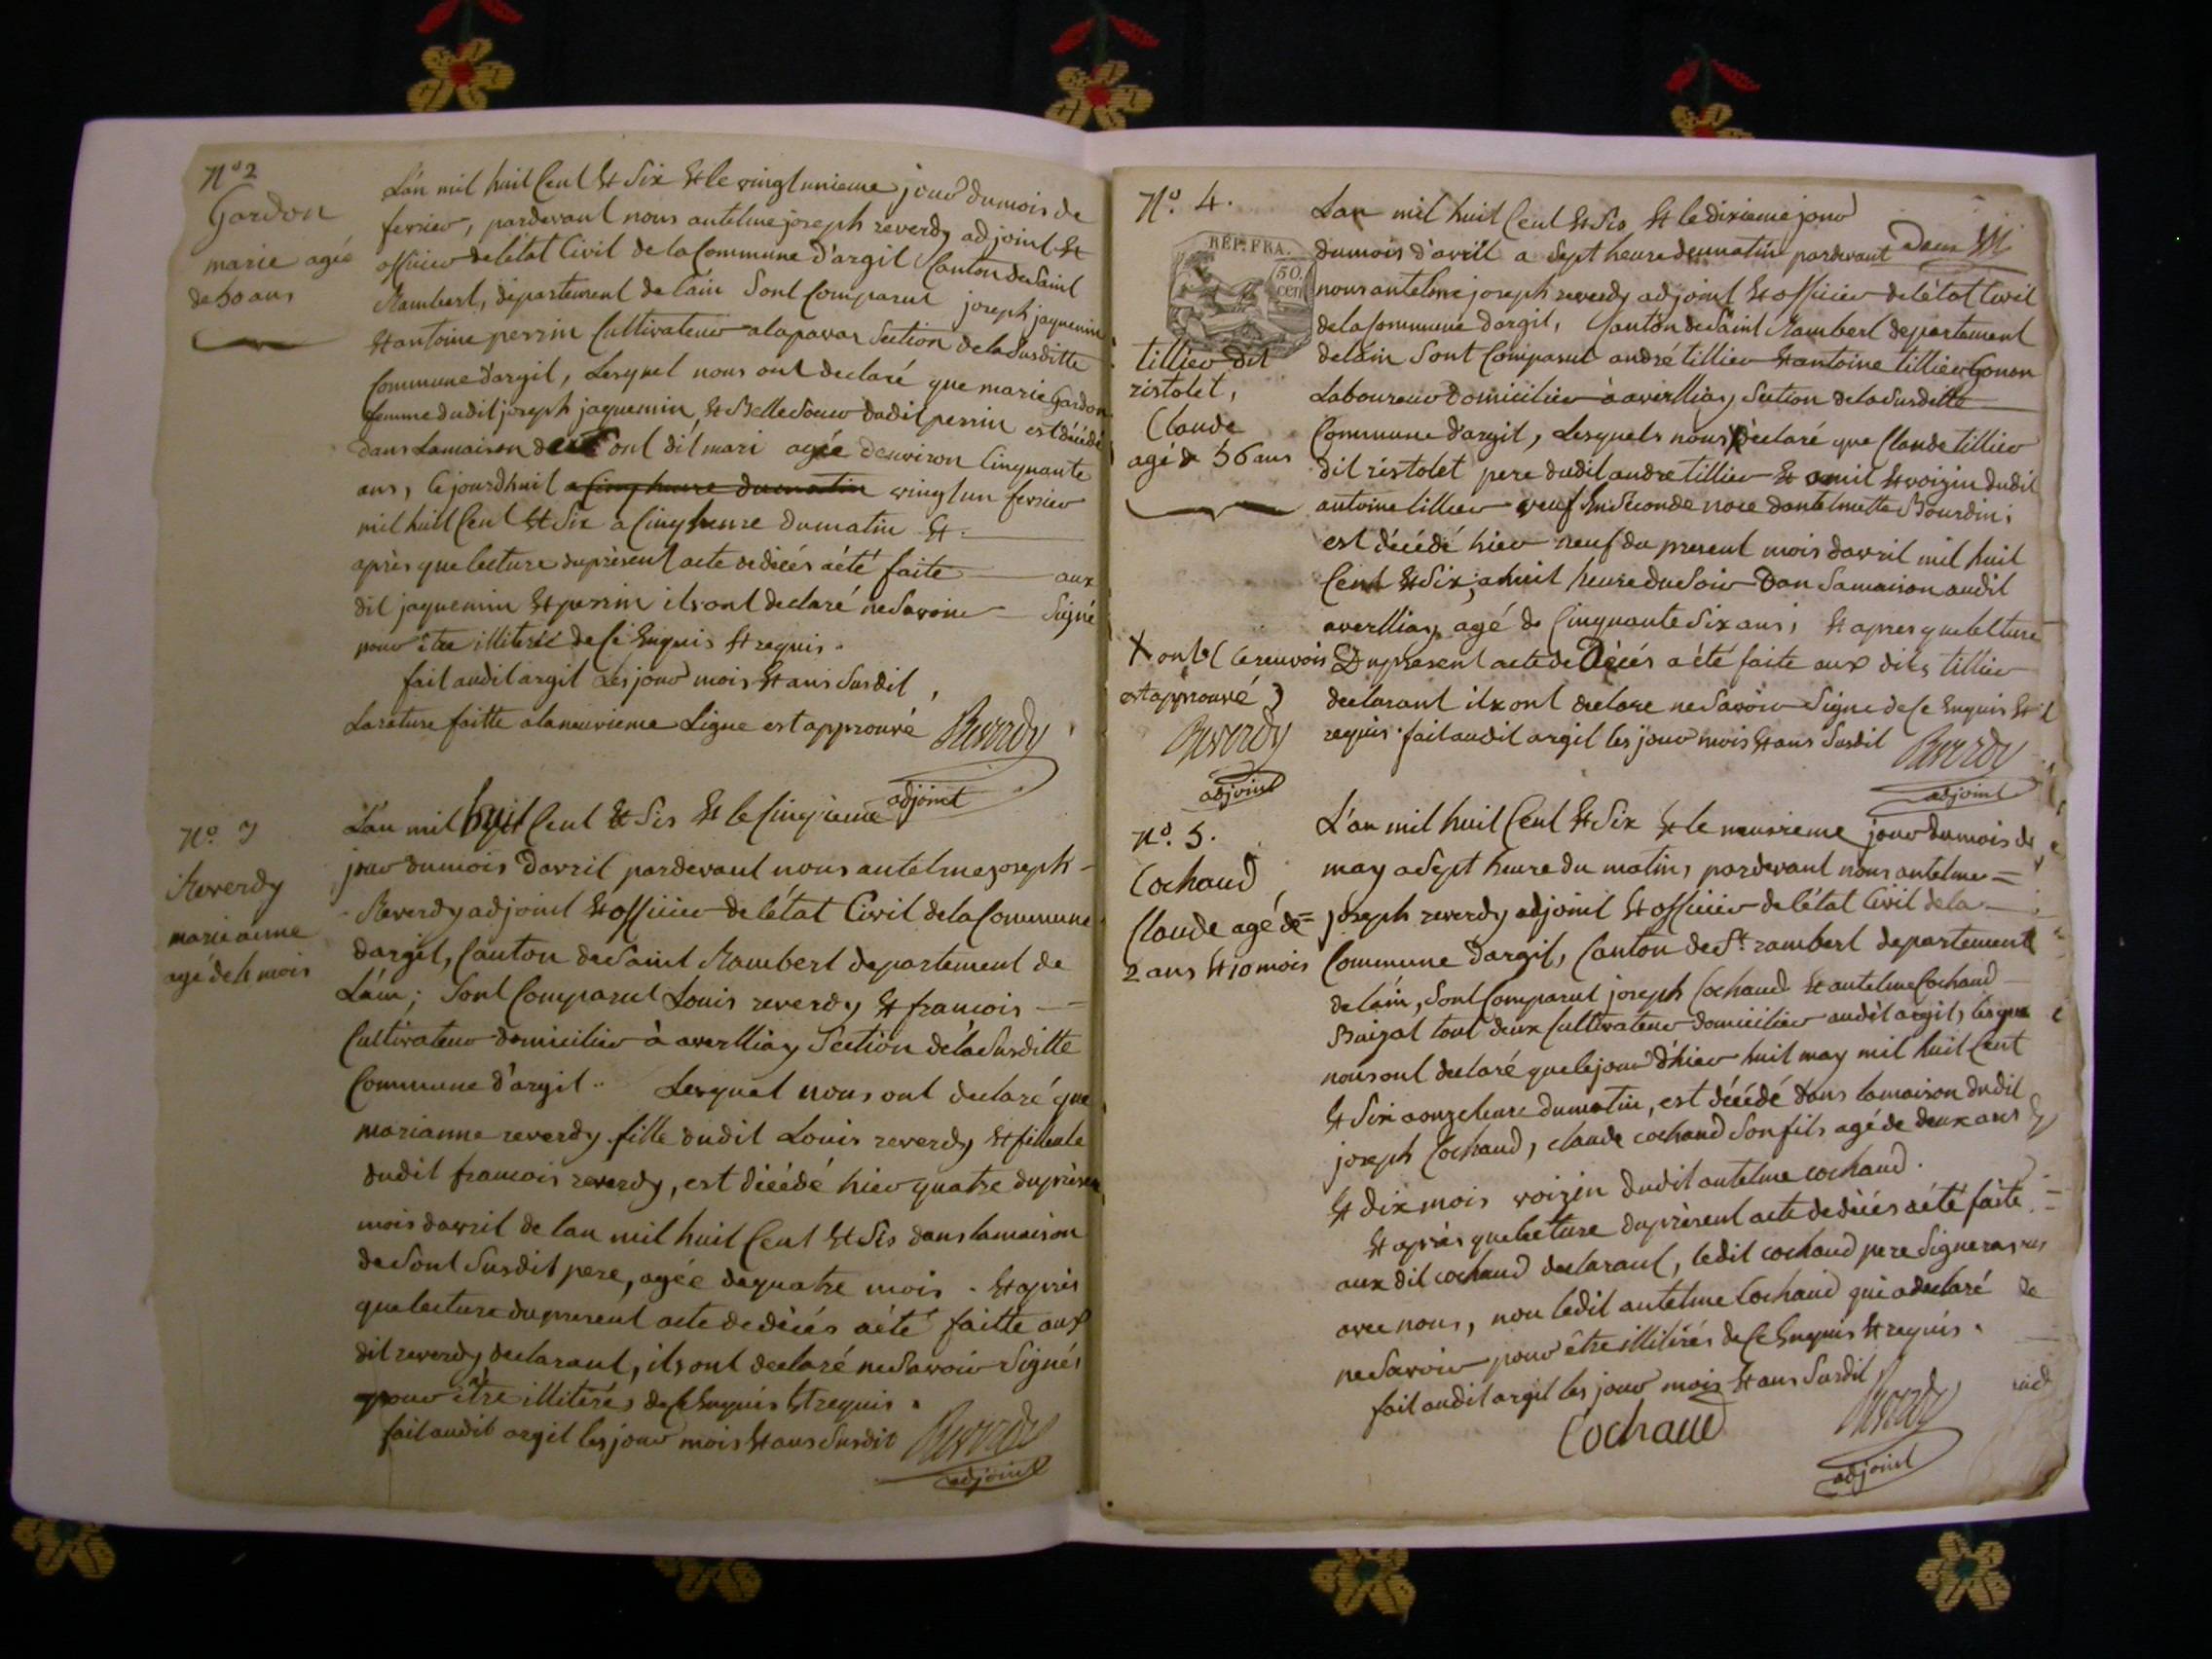 N° 2
Gardon
marie agée
de 50 ans
L'an mil huit Cent Et Six Et le vingt unieme jour du mois de
fevrier, pardevant nous antelme joseph reverdy adjoint Et
officier de l'état Civil de la Commune d'argit Canton de Saint
Rambert, departement de l'ain Sont Comparut joseph jaquemin
Et antoine perrin Cultivateur a laparas Section de la Susditte
Commune d'argit, Lesquel nous ont declaré que marie Gardon
femme dudit joseph jaquemin, Et Belle Soeur dudit perrin est décédé
dans La maison de Sont dit mari agée d'environ Cinquante
ans, Cejourdhuit a Cinq heure du matin vingt un fevrier
mil huit Cent Et Six a Cinq heure du matin Et.
après que lecture du présent acte de décés a été faite aux
dit jaquemin Et perrin ils ont declaré ne Savoire Signé
pour être illiteré de Ce Enquis Et requis.
fait audit argit Les jour mois Et ans Susdit,
La rature faitte a la neuvieme Ligne est approuvé Reverdy
adjoint
N° 3
Reverdy
marie anne
agé de 4 mois
L'an mil huit Cent Et Six Et le Cinquieme
jour du mois d'avril pardevant nous antelme joseph
Reverdy adjoint Et officier de l'état Civil de la Commune
d'argit, Canton de Saint Rambert departement de
L'ain; Sont Comparut Louis reverdy Et francois
Cultivateur domicilier à averlliay Section de la Susditte
Commune d'argit.. Lesquel nous ont declaré que
marianne reverdy fille dudit Louis reverdy Et filleule
dudit francois reverdy, est décédé hier quatre du présen
mois d'avril de l'an mil huit Cent Et Six dans la maison
de Sont Susdit pere, agée de quatre mois. Et après
que lecture du present acte de décés a été faitte aux
dit reverdy declarant, ils ont declaré ne Savoir Signés
pour être illiterés de Ce Enquis Et requis.
fait audit argit les jour mois Et ans Susdit Reverdy
adjoint
N°. 4.
RÉP. FRA.
50.
cen
tillier dit
ristolet,
Claude
agé de 56 ans
L'an mil huit Cent Et Six Et le dixieme jour
du mois d'avril a Sept heure du matin pardevant
nous antelme joseph reverdy adjoint Et officier de l'état Civil
de la Commune d'argit, Canton de Saint Rambert departement
de l'ain Sont Comparut andré tillier Et antoine tillier Gonon
Laboureur domicilier à averlliay Section de la Susditte
Commune d'argit, Lesquels nous X declaré que Claude tillier
dit ristolet pere dudit andre tillier Et amit Et voizin dudit
antoine tillier veuf En Seconde noce d'antelmette Bourdin;
est décédé hier neuf du present mois d'avril mil huit
Cent Et Six, a huit heure du Soir Dan Sa maison audit
averlliay, agé de Cinquante Six ans; Et apres que lecture
Du present acte de Décés a été faite aux dits tillier
declarant ils ont declare ne Savoir Signe de Ce Enquis Et
requis. fait audit argit les jour mois Et ans Susdit Reverdy
adjoint
X ont (le renvois
est approuvé)
Reverdy
adjoint
N°. 5.
Cochaud,
Claude agé de =
2 ans Et 10 mois
L'an mil huit Cent Et Six Et le neuvieme jour du mois de
may a Sept heure du matin, pardevant nous antelme =
joseph reverdy adjoint Et officier de l'état Civil de la
Commune d'argit, Canton de St. rambert departement
de l'ain, Sont Comparut joseph Cochaud Et antelme Cochaud
Buizat tout deux Cultivateur domicilier audit argit, lesque
nous ont declaré que le jour d'hier huit may mil huit Cent
Et Six a onze heure du matin, est décédé dans la maison dudit
joseph Cochaud, claude cochaud Son fils agé de deux ans
Et dix mois voizin dudit antelme cochaud.
Et après que lecture du présent acte de décés a été faite
aux dit cochaud declarant, ledit cochaud pere Signera
avec nous, non ledit antelme Cochaud qui a declaré
ne Savoir pour être illitérés de Ce Enquis Et requis.
fait audit argit les jour mois Et ans Susdit
Cochaud Reverdy
adjoint